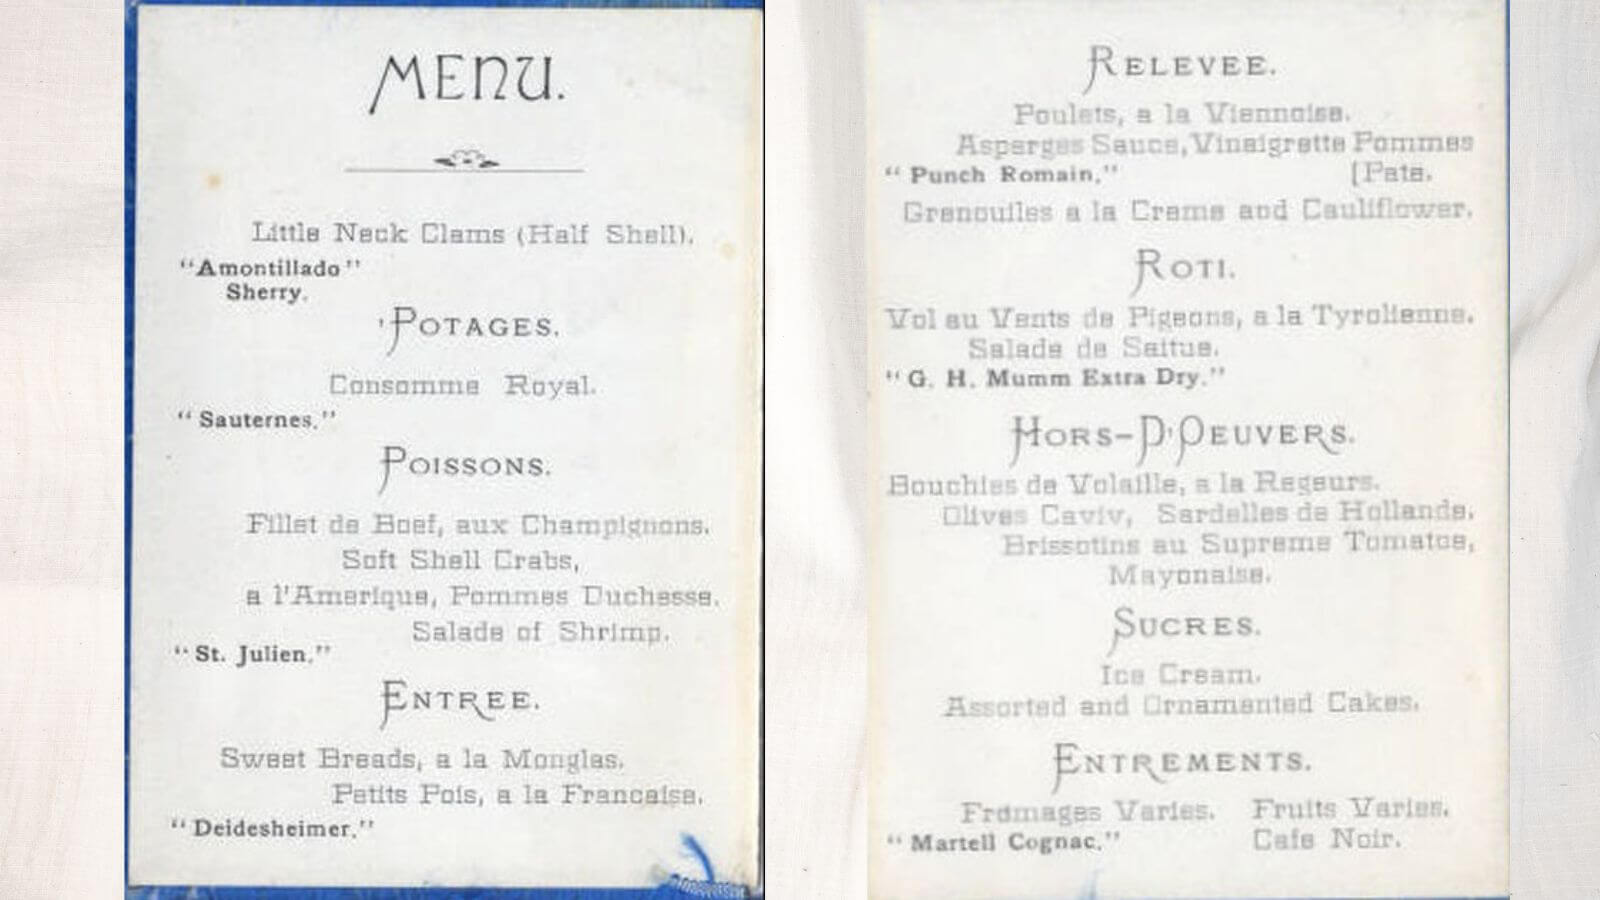 MENU.
Little Neck Clams (Half Shell).
"Amontillado"
Sherry.
POTAGES.
Consomme Royal.
"Sauternes."
POISSONS.
Fillet de Boef, aux Champignons.
Soft Shell Crabs,
a l'Amerique, Pommes Duchesse.
Salade of Shrimp.
"St. Julien."
ENTREE.
Sweet Breads, a la Monglas.
Petits Pois, a la Francaise.
"Deidesheimer."
RELEVEE.
Poulets, a la Viennoise.
Asperges Sauce, Vinaigrette Pommes
"Punch Romain." [Pate.
Grenouiles a la Creme and Cauliflower.
ROTI.
Vol au Vents de Pigeons, a la Tyrolienne.
Salade de Saitue.
"G. H. Mumm Extra Dry."
HORS-D'OEUVERS.
Bouchies de Volaille, a la Regeurs.
Olives Caviv, Sardelles de Hollande.
Brissotins au Supreme Tomatoe,
Mayonaise.
SUCRES.
Ice Cream.
Assorted and Ornamented Cakes.
ENTREMENTS.
Fromages Varies. Fruits Varies.
"Martell Cognac." Cafe Noir.